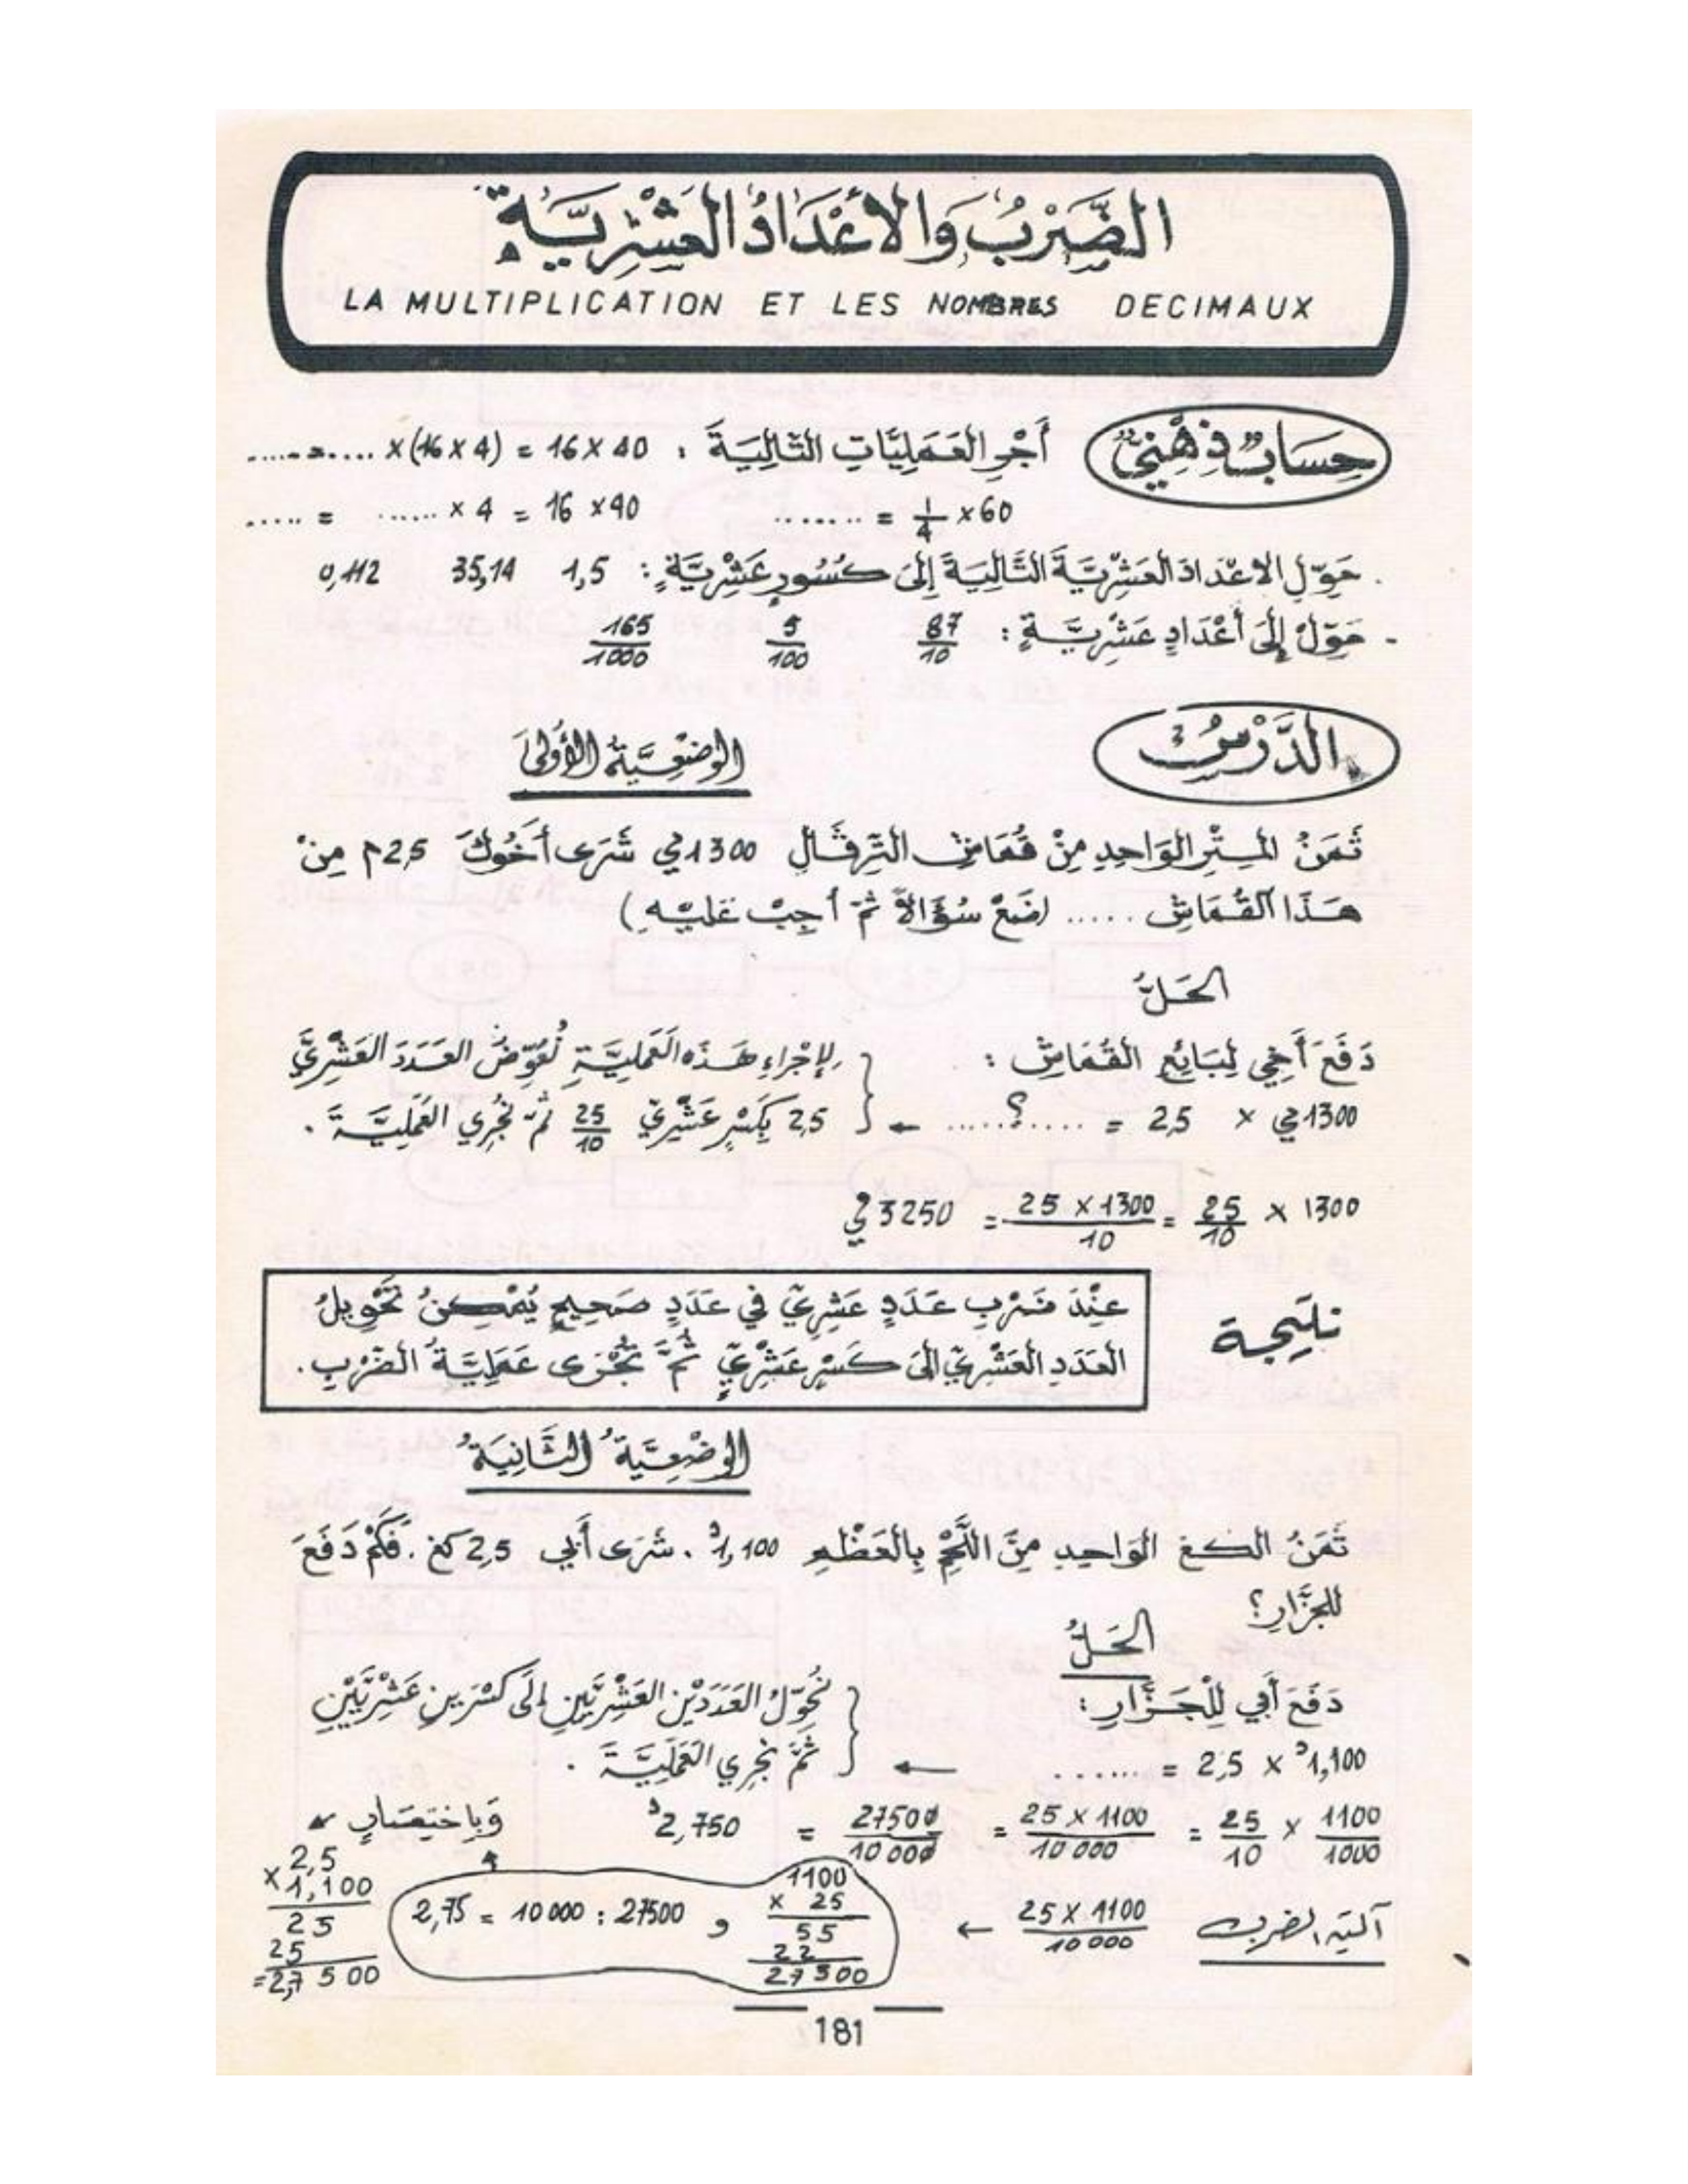 الضَّرْبُ وَالأَعْدَادُ العَشْرِيَّةُ
LA MULTIPLICATION ET LES NOMBRES DECIMAUX
حِسَابٌ ذِهْنِيٌّ
أَجْرِ العَمَلِيَّاتِ التَّالِيَةَ : 40 × 16 = (4 × 16) × .... = .....
60 × 1/4 = ........
40 × 16 = 4 × ...... = .....
. حَوِّلِ الاعْدَادَ العَشْرِيَّةَ التَّالِيَةَ إِلَى كُسُورٍ عَشْرِيَّةٍ : 1,5 35,14 0,112
- حَوِّلْ إِلَى أَعْدَادٍ عَشْرِيَّةٍ : 87/10 5/100 165/1000
الدَّرْسُ
الوَضْعِيَّةُ الأُولَى
ثَمَنُ المِتْرِ الوَاحِدِ مِنْ قُمَاشِ التِّرِقَالِ 1300 مي شَرَى أَخُوكَ 2,5 م مِنْ
هَذَا القُمَاشِ ..... (ضَعْ سُؤَالاً ثُمَّ أَجِبْ عَلَيْهِ)
الحَلُّ
دَفَعَ أَخِي لِبَائِعِ القُمَاشِ :
1300 مي × 2,5 = .....؟.... ←
لِإِجْرَاءِ هَذِهِ العَمَلِيَّةِ نُعَوِّضُ العَدَدَ العَشْرِيَّ
2,5 بِكَسْرٍ عَشْرِيٍّ 25/10 ثُمَّ نُجْرِي العَمَلِيَّةَ .
1300 × 25/10 = 25 × 1300/10 = 3250 مي
نتيجة
عِنْدَ ضَرْبِ عَدَدٍ عَشْرِيٍّ فِي عَدَدٍ صَحِيحٍ يُمْكِنُ تَحْوِيلُ
العَدَدِ العَشْرِيِّ إلَى كَسْرٍ عَشْرِيٍّ ثُمَّ تُجْرَى عَمَلِيَّةُ الضَّرْبِ .
الوَضْعِيَّةُ الثَّانِيَةُ
ثَمَنُ الكغ الوَاحِدِ مِنَ اللَّحْمِ بِالعَظْمِ 1,100د . شَرَى أَبِي 2,5 كغ . فَكَمْ دَفَعَ
لِلجَزَّارِ؟
الحَلُّ
دَفَعَ أَبِي لِلْجَزَّارِ :
1,100د × 2,5 = ....... ←
نُحَوِّلُ العَدَدَيْنِ العَشْرِيَّيْنِ إِلَى كَسْرَيْنِ عَشْرِيَّيْنِ
ثُمَّ نُجْرِي العَمَلِيَّةَ .
1100/1000 × 25/10 = 25 × 1100/10 000 = 27500/10 000 = 2,750د
وَبِاخْتِصَارٍ
آلية الضرب
25 × 1100/10 000 ←
1100
× 25
55
22
27500
و 27500 : 10 000 = 2,75
2,5
× 1,100
25
25
= 2,7 500
181